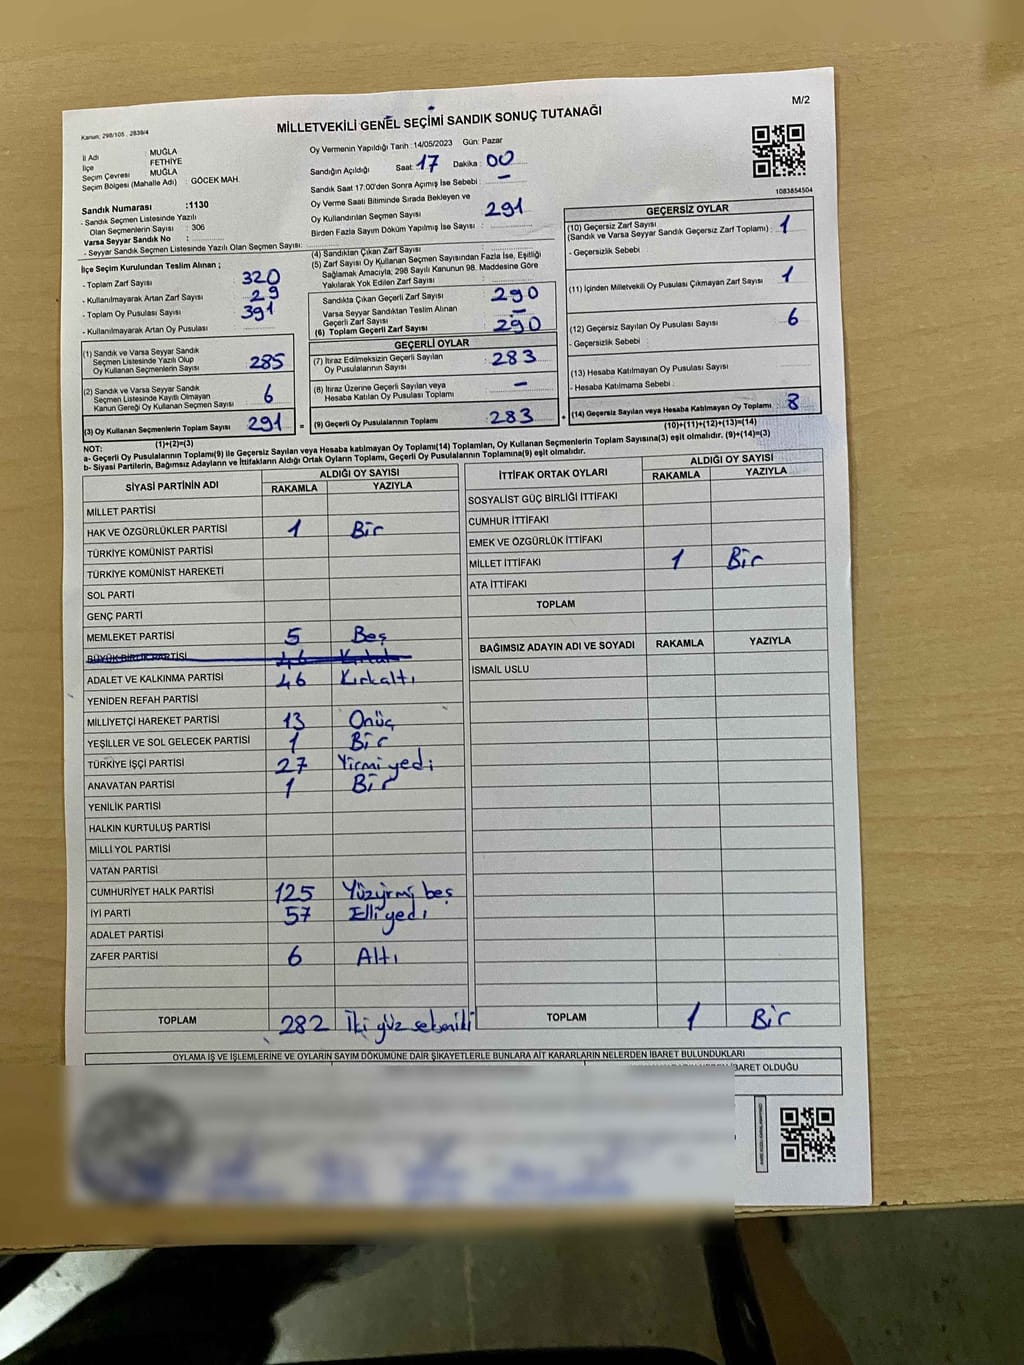 M/2
Kanun: 298/105 , 2839/4
MİLLETVEKİLİ GENEL SEÇİMİ SANDIK SONUÇ TUTANAĞI
İl Adı : MUĞLA
İlçe FETHİYE
Seçim Çevresi MUĞLA
Seçim Bölgesi (Mahalle Adı) : GÖCEK MAH.
Sandık Numarası :1130
- Sandık Seçmen Listesinde Yazılı
Olan Seçmenlerin Sayısı : 306
Varsa Seyyar Sandık No :
- Seyyar Sandık Seçmen Listesinde Yazılı Olan Seçmen Sayısı:
Oy Vermenin Yapıldığı Tarih : 14/05/2023 Gün: Pazar
Sandığın Açıldığı Saat: 17 Dakika: 00
Sandık Saat 17:00'den Sonra Açımış İse Sebebi : –
Oy Verme Saati Bitiminde Sırada Bekleyen ve
Oy Kullandırılan Seçmen Sayısı 291
Birden Fazla Sayım Döküm Yapılmış İse Sayısı :
1083854504
İlçe Seçim Kurulundan Teslim Alınan ;
- Toplam Zarf Sayısı 320
- Kullanılmayarak Artan Zarf Sayısı 29
- Toplam Oy Pusulası Sayısı 391
- Kullanılmayarak Artan Oy Pusulası
(1) Sandık ve Varsa Seyyar Sandık
Seçmen Listesinde Yazılı Olup
Oy Kullanan Seçmenlerin Sayısı 285
(2) Sandık ve Varsa Seyyar Sandık
Seçmen Listesinde Kayıtlı Olmayan
Kanun Gereği Oy Kullanan Seçmen Sayısı 6
(3) Oy Kullanan Seçmenlerin Toplam Sayısı 291 =
(1)+(2)=(3)
(4) Sandıktan Çıkan Zarf Sayısı
(5) Zarf Sayısı Oy Kullanan Seçmen Sayısından Fazla İse, Eşitliği
Sağlamak Amacıyla, 298 Sayılı Kanunun 98. Maddesine Göre
Yakılarak Yok Edilen Zarf Sayısı
Sandıkta Çıkan Geçerli Zarf Sayısı 290
Varsa Seyyar Sandıktan Teslim Alınan
Geçerli Zarf Sayısı –
(6) Toplam Geçerli Zarf Sayısı 290
GEÇERLİ OYLAR
(7) İtiraz Edilmeksizin Geçerli Sayılan
Oy Pusulalarının Sayısı : 283
(8) İtiraz Üzerine Geçerli Sayılan veya
Hesaba Katılan Oy Pusulası Toplamı –
(9) Geçerli Oy Pusulalarının Toplamı : 283 +
GEÇERSİZ OYLAR
(10) Geçersiz Zarf Sayısı
(Sandık ve Varsa Seyyar Sandık Geçersiz Zarf Toplamı) : 1
- Geçersizlik Sebebi
(11) İçinden Milletvekili Oy Pusulası Çıkmayan Zarf Sayısı 1
(12) Geçersiz Sayılan Oy Pusulası Sayısı 6
- Geçersizlik Sebebi :
(13) Hesaba Katılmayan Oy Pusulası Sayısı
- Hesaba Katılmama Sebebi :
(14) Geçersiz Sayılan veya Hesaba Katılmayan Oy Toplamı : 8
(10)+(11)+(12)+(13)=(14)
NOT:
a- Geçerli Oy Pusulalarının Toplamı(9) ile Geçersiz Sayılan veya Hesaba katılmayan Oy Toplamı(14) Toplamları, Oy Kullanan Seçmenlerin Toplam Sayısına(3) eşit olmalıdır. (9)+(14)=(3)
b- Siyasi Partilerin, Bağımsız Adayların ve İttifakların Aldığı Ortak Oyların Toplamı, Geçerli Oy Pusulalarının Toplamına(9) eşit olmalıdır.
SİYASİ PARTİNİN ADI ALDIĞI OY SAYISI
RAKAMLA YAZIYLA
MİLLET PARTİSİ
HAK VE ÖZGÜRLÜKLER PARTİSİ 1 Bir
TÜRKİYE KOMÜNİST PARTİSİ
TÜRKİYE KOMÜNİST HAREKETİ
SOL PARTİ
GENÇ PARTİ
MEMLEKET PARTİSİ 5 Beş
BÜYÜK BİRLİK PARTİSİ 46
ADALET VE KALKINMA PARTİSİ 46 Kırkaltı
YENİDEN REFAH PARTİSİ
MİLLİYETÇİ HAREKET PARTİSİ 13 Onüç
YEŞİLLER VE SOL GELECEK PARTİSİ 1 Bir
TÜRKİYE İŞÇİ PARTİSİ 27 Yirmiyedi
ANAVATAN PARTİSİ 1 Bir
YENİLİK PARTİSİ
HALKIN KURTULUŞ PARTİSİ
MİLLİ YOL PARTİSİ
VATAN PARTİSİ
CUMHURİYET HALK PARTİSİ 125 Yüzyirmi beş
İYİ PARTİ 57 Elliyedi
ADALET PARTİSİ
ZAFER PARTİSİ 6 Altı
TOPLAM 282 İki yüz seksenİki
İTTİFAK ORTAK OYLARI ALDIĞI OY SAYISI
RAKAMLA YAZIYLA
SOSYALİST GÜÇ BİRLİĞİ İTTİFAKI
CUMHUR İTTİFAKI
EMEK VE ÖZGÜRLÜK İTTİFAKI
MİLLET İTTİFAKI 1 Bir
ATA İTTİFAKI
TOPLAM
BAĞIMSIZ ADAYIN ADI VE SOYADI RAKAMLA YAZIYLA
İSMAİL USLU
TOPLAM 1 Bir
OYLAMA İŞ VE İŞLEMLERİNE VE OYLARIN SAYIM DÖKÜMÜNE DAİR ŞİKAYETLERLE BUNLARA AİT KARARLARIN NELERDEN İBARET BULUNDUKLARI
İBARET OLDUĞU